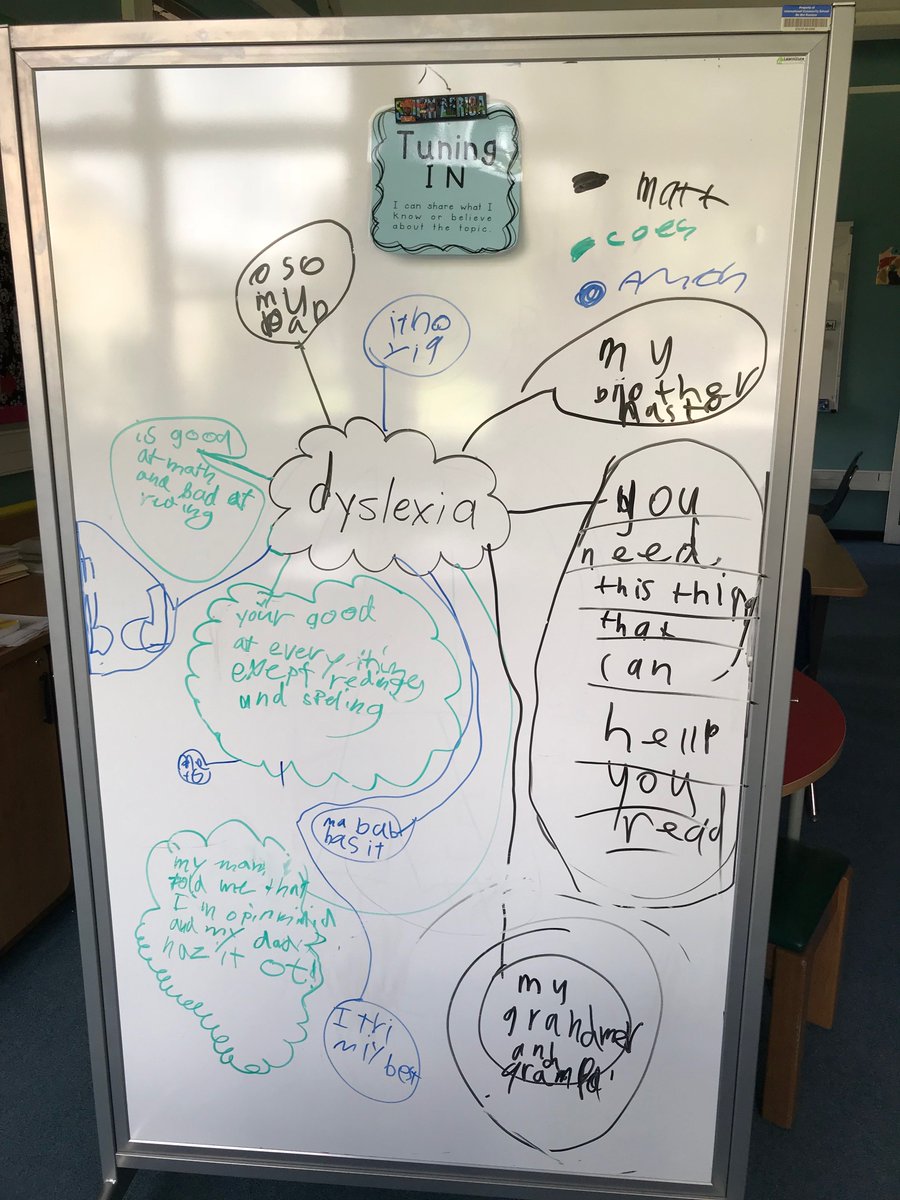 Tuning
IN
I can share what I
know or believe
about the topic.
matt
oso
my
dad
my
brother
has to
dyslexia
is good
at math
and bad at
reding
you
need
this thing
that
can
hellp
you
read
your good
at every thing
exept redinge
and speling
has it
my mam
told me that
I m
and my dad
haz it ot!
I tri
miy best
my
grandmer
and
grampa